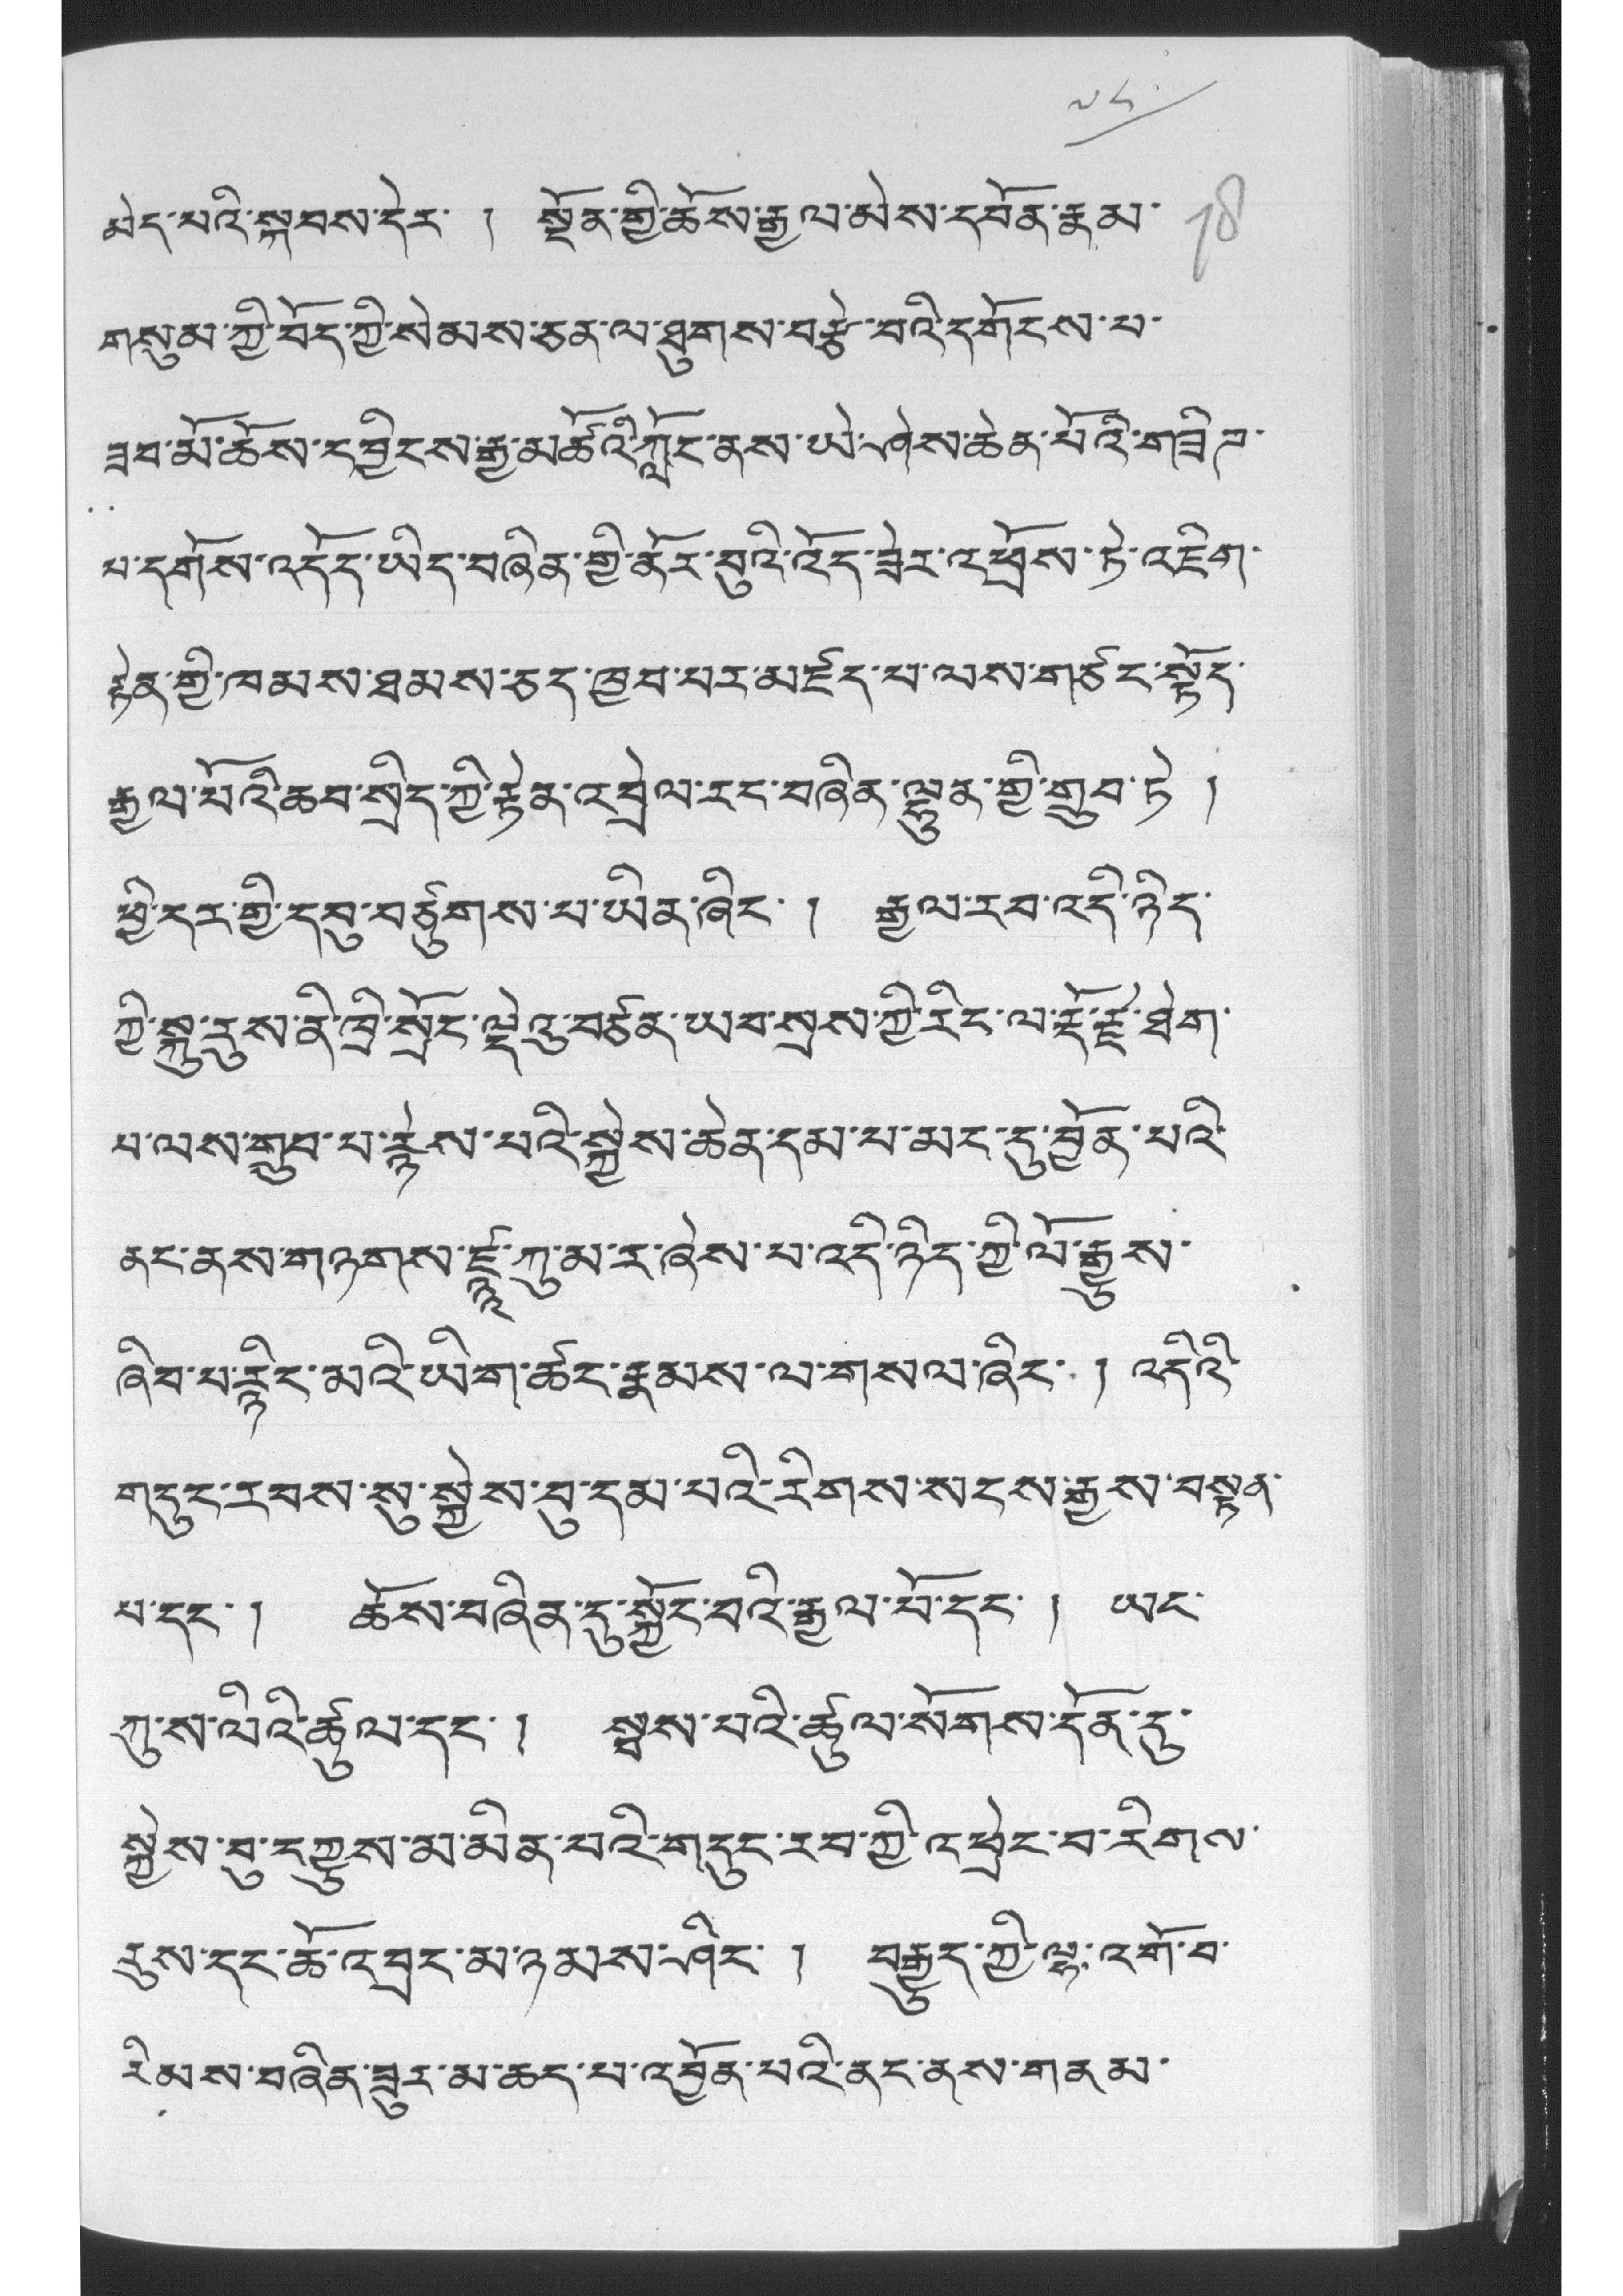 ༧༨
18
མེད་པའི་སྐབས་དེར་ ། སྔོན་གྱི་ཆོས་རྒྱལ་མེས་དབོན་རྣམ་
གསུམ་གྱི་བོད་ཀྱི་སེམས་ཅན་ལ་ཐུགས་བརྩེ་བའི་དགོངས་པ་
ཟབ་མོ་ཆོས་དབྱིངས་རྒྱ་མཚོའི་ཀློང་ནས་ཡེ་ཤེས་ཆེན་པོའི་གཟི་
པ་དགོས་འདོད་ཡིད་བཞིན་གྱི་ནོར་བུའི་འོད་ཟེར་འཕྲོས་ཏེ་འཇིག་
རྟེན་གྱི་ཁམས་ཐམས་ཅད་ཁྱབ་པར་མཛད་པ་ལས་གཙང་སྟོད་
རྒྱལ་པོའི་ཆབ་སྲིད་ཀྱི་རྟེན་འབྲེལ་རང་བཞིན་ལྷུན་གྱི་གྲུབ་ཏེ །
ཕྱི་དར་གྱི་དབུ་བཙུགས་པ་ཡིན་ཞིང་ ། རྒྱལ་རབ་འདི་ཉིད་
ཀྱི་སྐུ་རུས་ནི་ཁྲི་སྲོང་ལྡེའུ་བཙན་ཡབ་སྲས་ཀྱི་རིང་ལ་རྡོ་རྗེ་ཐེག་
པ་ལས་གྲུབ་པ་རྙེས་པའི་སྐྱེས་ཆེན་དམ་པ་མང་དུ་བྱོན་པའི་
ནང་ནས་གཉགས་ཛྙཱ་ཀུ་མ་ར་ཞེས་པ་འདི་ཉིད་ཀྱི་ལོ་རྒྱུས་
ཞིབ་པ་རྙིང་མའི་ཡིག་ཚང་རྣམས་ལ་གསལ་ཞིང་ ། འདིའི་
གདུང་རབས་སུ་སྐྱེས་བུ་དམ་པའི་རིགས་སངས་རྒྱས་བསྟན་
པ་དང་ ། ཆོས་བཞིན་དུ་སྐྱོང་བའི་རྒྱལ་པོ་དང་ ། ཡང་
ཀུ་ས་ལིའི་ཚུལ་དང་ ། སྦས་པའི་ཚུལ་སོགས་དོན་དུ་
སྐྱེས་བུ་དཀྱུས་མ་མིན་པའི་གདུང་རབ་ཀྱི་འཕྲེང་བ་རིགས་
རུས་དང་ཆོ་འབྲང་མ་ཉམས་ཤིང་ ། བརྒྱུད་ཀྱི་ལྷ་འགོ་བ་
རིམས་བཞིན་ཟུར་མ་ཆད་པ་འབྱོན་པའི་ནང་ནས་གནམ་